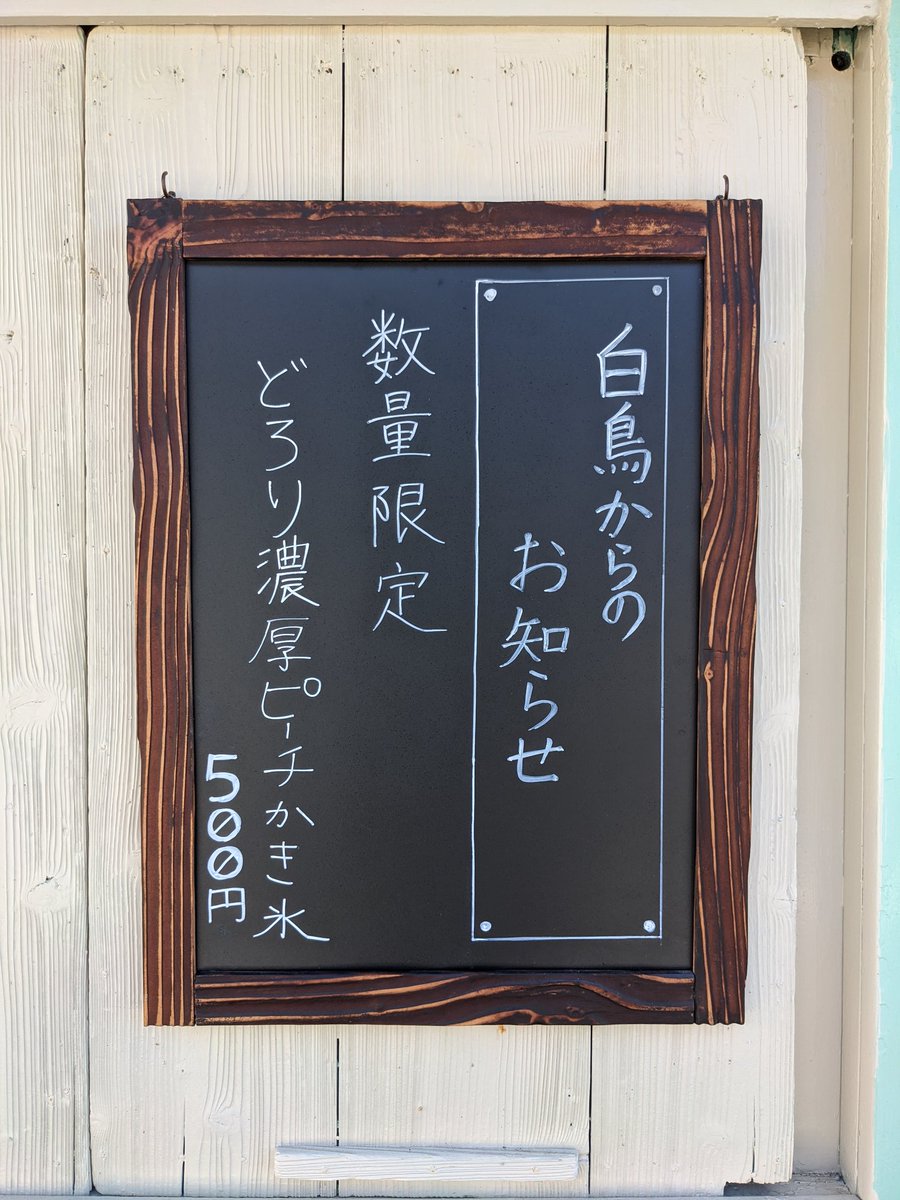 白鳥からの
お知らせ
数量限定
どろり濃厚ピーチかき氷
500円